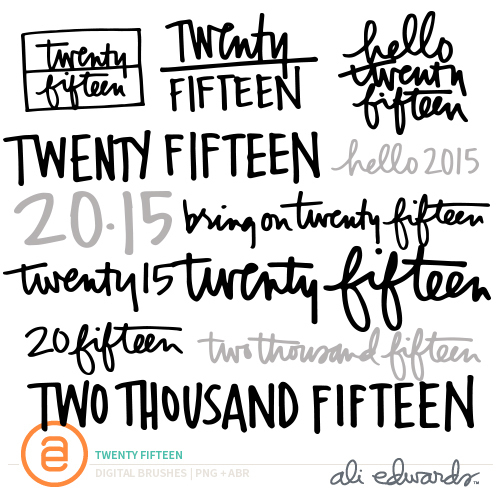 twenty
fifteen
Twenty
FIFTEEN
hello
twenty
fifteen
TWENTY FIFTEEN
hello 2015
20·15
bring on twenty fifteen
twenty15
twenty fifteen
20 fifteen
two thousand fifteen
TWO THOUSAND FIFTEEN
ae
TWENTY FIFTEEN
DIGITAL BRUSHES | PNG + ABR
ali edwards™